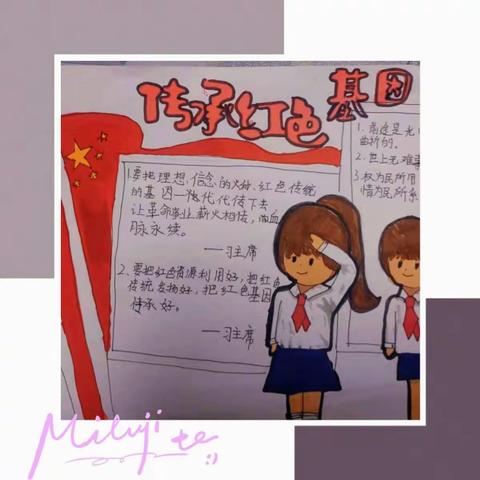 传承红色基因
1.要把理想、信念的火种、红色传统
的基因一代代传下去,
让革命事业薪火相传,血
脉永续。
——习主席
2、要把红色资源利用好,把红色
传统发扬好,把红色基因
传承好。
——习主席
1.前途是光
曲折的。
2.世上无难事
3.权为民所用
情为民所系
Miluji te :)